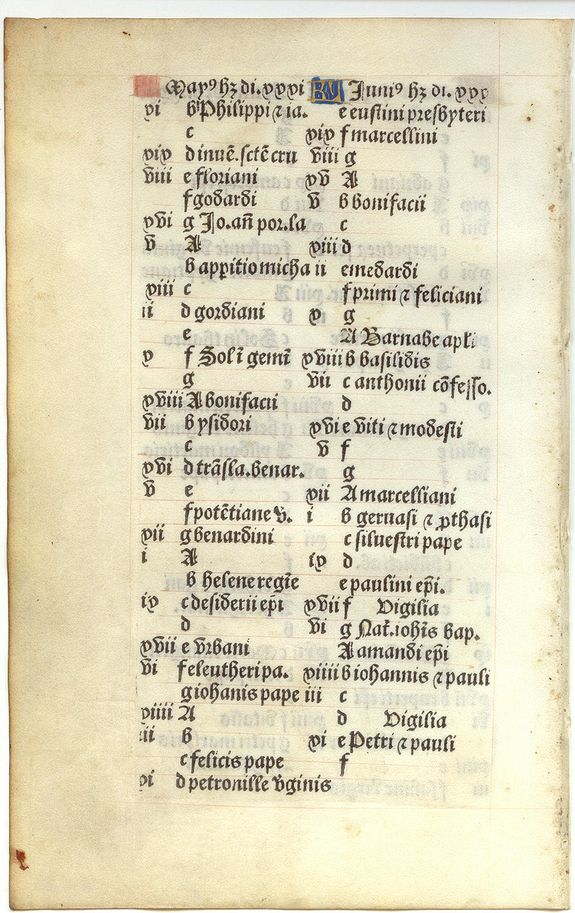 Mayꝰ hꝫ di. xxxi
xi b Philippi ⁊ ia.
c
xix d inuē. sctē cru
viii e floriani
f godardi
xvi g Jo. añ por. la
v A
b appitio micha
xiii c
ii d gordiani
e
x f Sol ī gemī
g
xviii A bonifacii
vii b ysidori
c
xvi d trāsla. benar.
v e
f potētiane v.
xii g benardini
i A
b helene regīe
ix c desiderii ep̄i
d
xvii e Vrbani
vi f eleutheri pa.
g iohanis pape
xiiii A
iii b
c felicis pape
xi d petronille v̄ginis
KL Juniꝰ hꝫ di. xxx
e eustini presbyteri
xix f marcellini
viii g
xv A
v b bonifacii
c
xiii d
ii e medardi
f primi ⁊ feliciani
x g
A Barnabe apl̄i
xviii b basilidis
vii c anthonii cōfesso.
d
xvi e Viti ⁊ modesti
v f
g
xii A marcelliani
i b geruasi ⁊ ꝓthasi
c siluestri pape
ix d
e paulini ep̄i.
xvii f Vigilia
vi g Nat̄. ioh̄is bap.
A amandi ep̄i
xiiii b iohannis ⁊ pauli
iii c
d Vigilia
xi e Petri ⁊ pauli
f